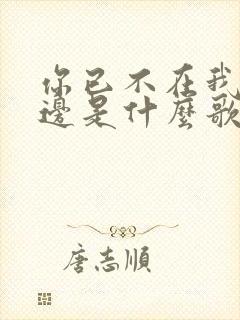 你已不在我
邊是什麼歌
唐志順